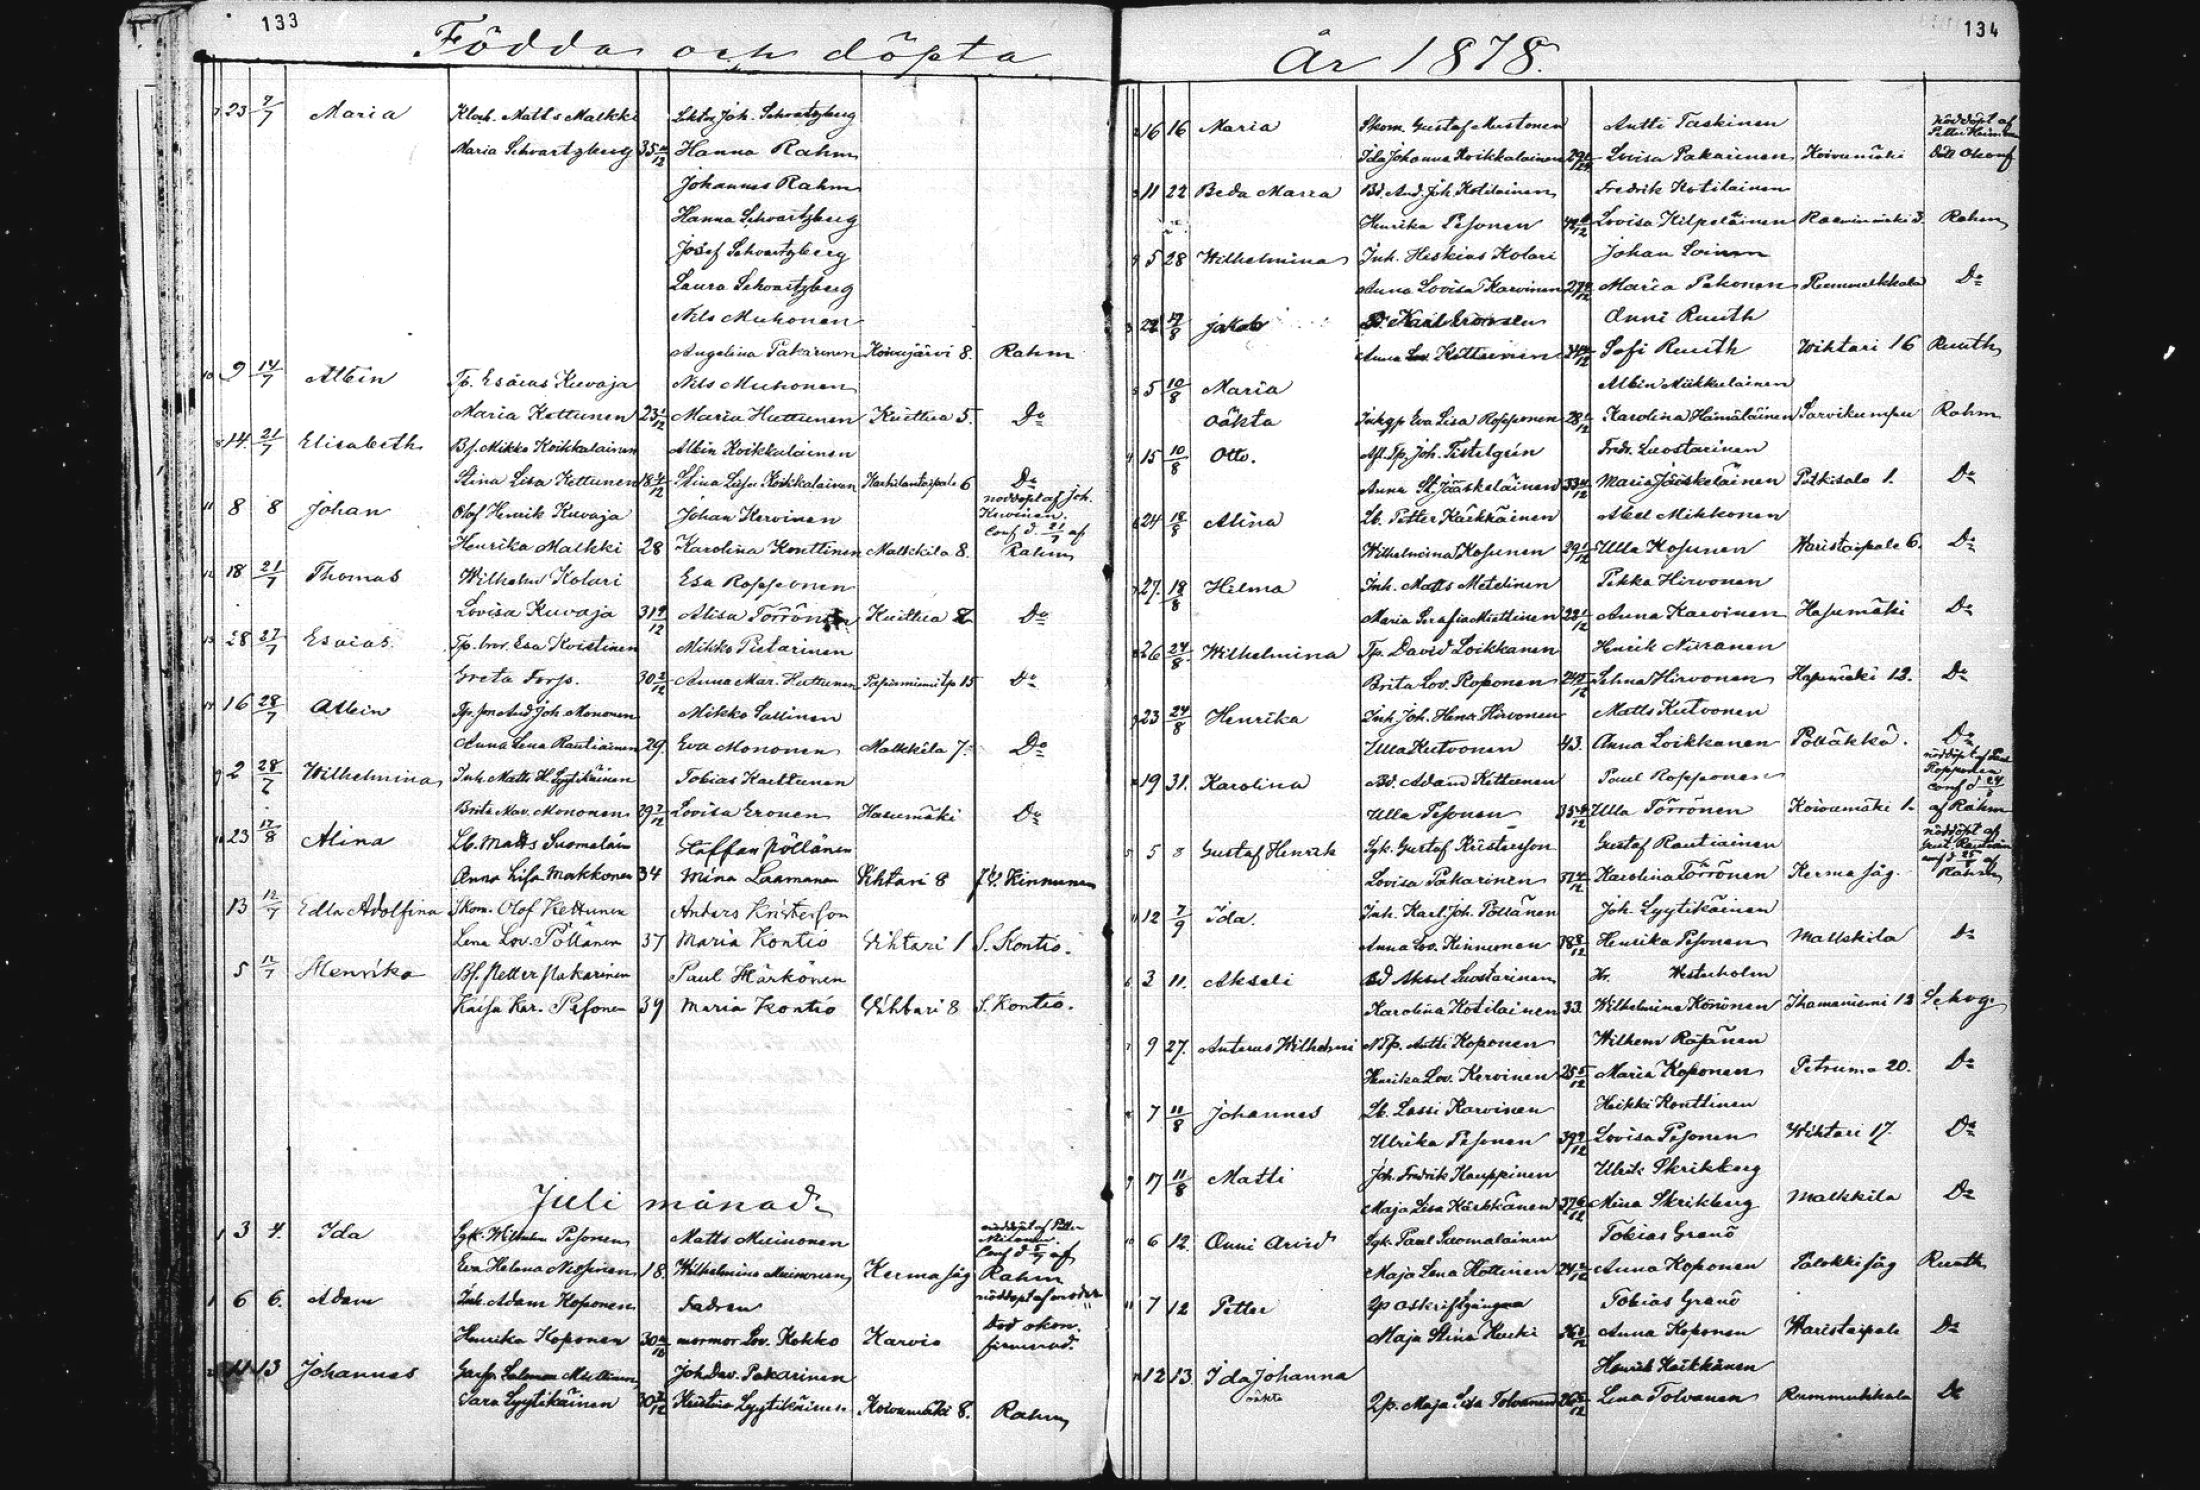 133
Födda och döpta
23 7/7 Maria Klock. Matts Malkki Lektor Joh. Schvartzberg
Maria Schvartzberg 35 Hanna Rahm
Johannes Rahm
Hanna Schvartzberg
Josef Schvartzberg
Laura Schvartzberg
Nils Muhonen
Angelina Pakarinen Koivujärvi 8. Rahm
10 9 14/7 Albin Tp. Esaias Kuvaja Nils Muhonen
Maria Kettunen 23 1/12 Maria Huttunen Kiuttua 5. Do
8 14. 21/7 Elisabeth Bf. Mikko Koikkalainen Albin Koikkalainen
Stina Lisa Kettunen 18 Stina Lisa Koikkalainen 6 Do
11 8 8 Johan Olof Henrik Kuvaja Johan Kervinen nöddöpt af Joh. Kervinen. Conf d. 21/7 af
Henrika Malkki 28 Karolina Konttinen Malkkila 8. Rahm
12 18 21/7 Thomas Wilhelm Kolari Esa Ropponen
Lovisa Kuvaja 31 9/12 Alisa Törrönen Kiuttua Do
13 28 27/7 Esaias Tp. Esa Koistinen Mikko Pietarinen
Greta Forss. 30 2/12 Anna Mar. Huttunen Papinniemi tp 15 Do
14 16 28/7 Albin Tp. son And. Joh. Mononen Mikko Sallinen
Anna Lena Rautiainen 29. Eva Mononen Malkkila 7. Do
9 2 28/7 Wilhelmina Inh. Matts H. Lyytikäinen Tobias Karttunen
Brita Mar. Mononen 29 2/12 Lovisa Eronen Hasumäki Do
10 23 12/8 Alina Lb. Matts Suomalain Staffan Pöllänen
Anna Lisa Makkonen 34 Mina Laamanen Vihtari 8 Kinnunen
13 12/7 Edla Adolfina Skom. Olof Kettunen Anders Kristersson
Lena Lov. Pöllänen 37 Maria Kontio Vihtari 1 S. Kontio.
5 12/7 Henrika Bf. Petter Pakarinen Paul Härkönen
Kaisa Kar. Pesonen 39 Maria Kontio Vihtari 8 S. Kontio.
Juli månad.
1 3 4. Ida Sgk. Wilhelm Pesonen Matts Muinonen nöddöpt af Petter Conf d 5/7 af
Eva Helena Nissinen 18. Wilhelmina Muinonen Kerma såg Rahm
1 6 6. Adam Inh. Adam Koponen Fadren nöddopt af modern
Henrika Koponen 30 mormor Lov. Kokko Karvio Död okonfirmerad.
2 11 13 Johannes Salomon Miettinen Joh. Dav. Pakarinen
Sara Lyytikäinen 30 7/12 Kristina Lyytikäinen Koivumäki 8. Rahm
134
År 1878.
2 16 16 Maria Skom. Gustaf Mustonen Antti Taskinen nöddöpt af Petter
Ida Johanna Koikkalainen 29 Lovisa Pakarinen Koivumäki Död okonf
3 11 22 Beda Maria Bd. And. Joh. Kotilainen Fredrik Kotilainen
Henrika Pesonen 42 Lovisa Kilpeläinen 3. Rahm
4 5 28 Wilhelmina Inh. Heskias Kolari Johan Loinen
Anna Lovisa Karvinen 27 Maria Pekonen Rummukkala Do
3 22 17/8 Jakob Bd. Karl Eronen Onni Ruuth
Anna Lov. Kettunen 34 Sofi Ruuth Wihtari 16 Ruuth
5 5 10/8 Maria Albin Miikkulainen
Oäkta Inhgp Eva Lisa Ropponen 28 Karolina Hämäläinen Sarvikumpu Rahm
4 15 10/8 Otto. Afl. Tp. Joh. Tistelgrén Fredr. Luostarinen
Anna St. Jääskeläinen 33 Maria Jääskeläinen Pitkisalo 1. Do
6 24 18/8 Alina Lb. Petter Kärkkäinen Abel Mikkonen
Wilhelmina Kosunen 29 1/12 Ulla Kosunen Waristaipale 6. Do
7 27. 18/8 Helma Inh. Matts Metelinen Pekka Hirvonen
Maria Serafia Miettinen 22 1/12 Anna Karvinen Hasumäki Do
8 26 24/8 Wilhelmina Tp. David Loikkanen Henrik Niiranen
Brita Lov. Roponen 24 Selma Hirvonen Hasumäki 12. Do
9 23 24/8 Henrika Inh. Joh. Henr. Hirvonen Matts Kutvonen
Ulla Kutvonen 43. Anna Loikkanen Pölläkkä. Do
10 19 31. Karolina Bd. Adam Kettunen Paul Ropponen nöddöpt af Paul Ropponen conf d 24/8
Ulla Pesonen 35 Ulla Törrönen Koivumäki 1. af Rahm
5 5 8 Gustaf Henrik Sgk. Gustaf Kristersson Gustaf Rautiainen nöddöpt af Gust. Rautiain conf d 25/8 af
Lovisa Pakarinen 37 4/12 Karolina Törrönen Kerma såg. Rahm
11 12 7/9 Ida. Inh. Karl Joh. Pöllänen Joh. Lyytikäinen
Anna Lov. Kinnunen 38 8/12 Henrika Pesonen Malkkila Do
6 3 11. Akseli Bd Aksel Luostarinen Hr. Westerholm
Karolina Kotilainen 33. Wilhelmina Könönen Ihamaniemi 12 Schvg.
7 9 27. Anterus Wilhelmi Antti Koponen Wilhem Räsänen
Henrika Lov. Kervinen 25 5/12 Maria Koponen Petruma 20. Do
8 7 11/8 Johannes Lb. Lassi Karvinen Heikki Konttinen
Ulrika Pesonen 39 9/12 Lovisa Pesonen Wihtari 17. Do
9 17 11/8 Matti Joh. Fredrik Kauppinen Ulrik Skrikberg
Maja Lisa Kärkkänen 37 6/12 Mina Skrikberg Malkkila Do
10 6 12. Onni Arvid Sgk. Paul Suomalainen Tobias Granö
Maja Lena Hottinen 24 Anna Koponen Palokki såg Ruuth
11 7 12 Petter Tobias Granö
Maja Stina Huski 36 Anna Koponen Waristaipale Do
12 12 13. Ida Johanna Henrik Kärkkänen
oäkta Qp. Maja Lisa Tolvanen 26 Lena Tolvanen Rummukkala Do